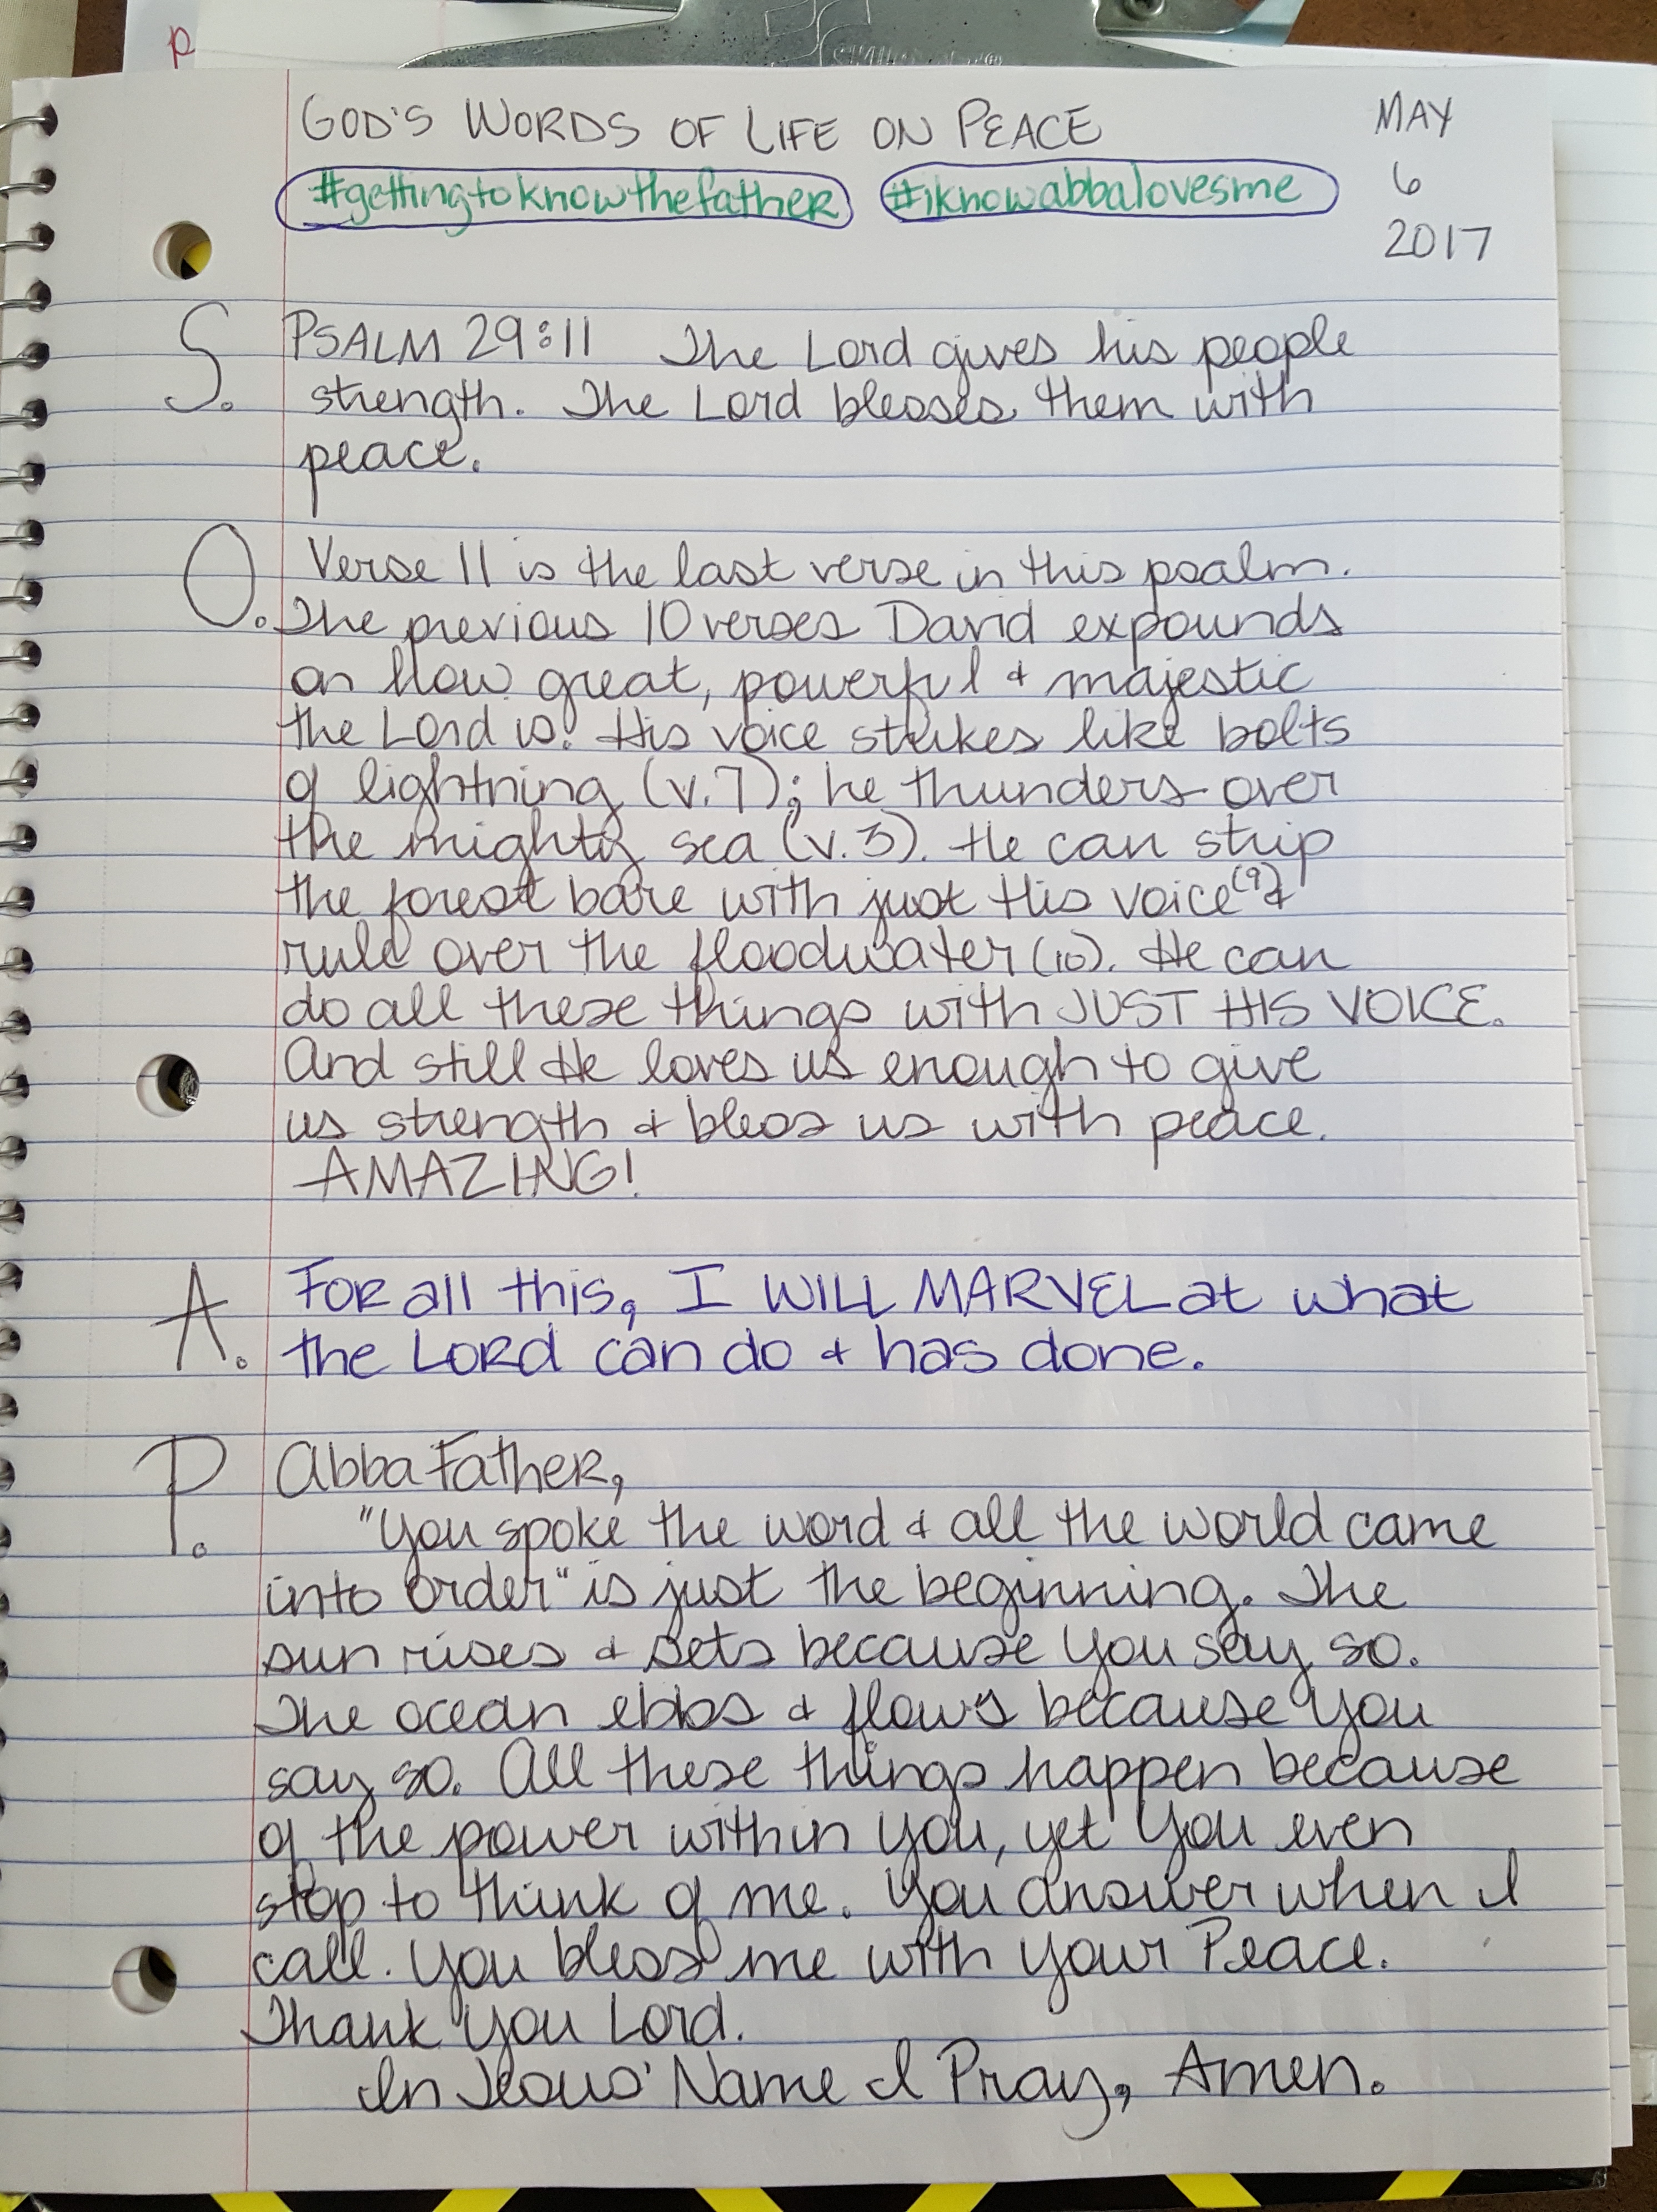 p
GOD'S WORDS OF LIFE ON PEACE
MAY
6
2017
#gettingtoknowthefather #iknowabbalovesme
S. PSALM 29:11 The Lord gives his people
strength. The Lord blesses them with
peace.
O. Verse 11 is the last verse in this psalm.
The previous 10 verses David expounds
on how great, powerful & majestic
the Lord is! His voice strikes like bolts
of lightning (v. 7); he thunders over
the mighty sea (v. 3). He can strip
the forest bare with just His voice (9) &
rule over the floodwater (10). He can
do all these things with JUST HIS VOICE.
And still He loves us enough to give
us strength & bless us with peace.
AMAZING!
A. For all this, I WILL MARVEL at what
the LORD can do & has done.
P. Abba Father,
"You spoke the word & all the world came
into order" is just the beginning. The
sun rises & sets because You say so.
The ocean ebbs & flows because You
say so. All these things happen because
of the power within You, yet You even
stop to think of me. You answer when I
call. You bless me with Your Peace.
Thank You Lord.
In Jesus' Name I Pray, Amen.